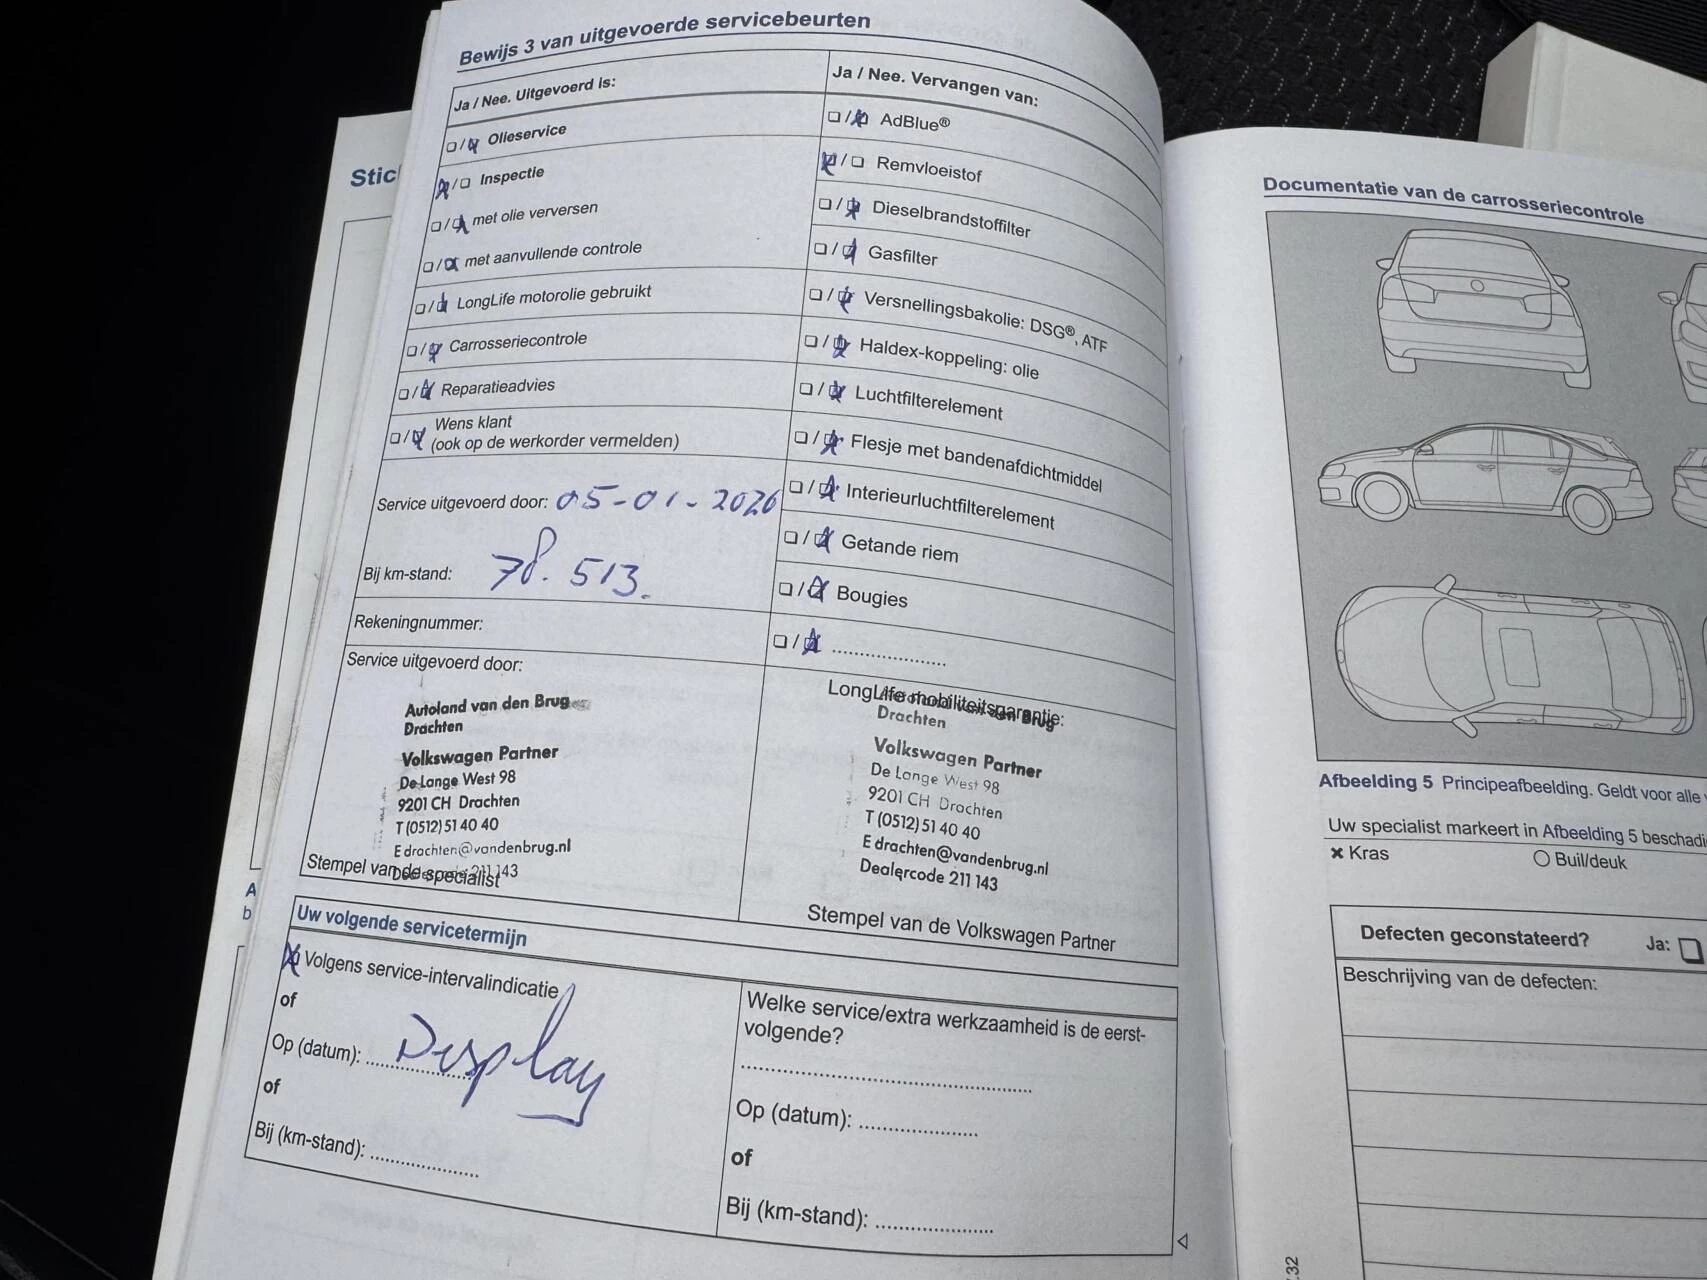 Bewijs 3 van uitgevoerde servicebeurten
Ja / Nee. Uitgevoerd is:
Olieservice
Inspectie
met olie verversen
met aanvullende controle
LongLife motorolie gebruikt
Carrosseriecontrole
Reparatieadvies
Wens klant
(ook op de werkorder vermelden)
Service uitgevoerd door: 05-01-2026
Bij km-stand: 78.513.
Rekeningnummer:
Service uitgevoerd door:
Autoland van den Brug
Drachten
Volkswagen Partner
De Lange West 98
9201 CH Drachten
T (0512) 51 40 40
E drachten@vandenbrug.nl
Dealercode 211 143
Stempel van de specialist
Ja / Nee. Vervangen van:
AdBlue®
Remvloeistof
Dieselbrandstoffilter
Gasfilter
Versnellingsbakolie: DSG®, ATF
Haldex-koppeling: olie
Luchtfilterelement
Flesje met bandenafdichtmiddel
Interieurluchtfilterelement
Getande riem
Bougies
....................
LongLife mobiliteitsgarantie:
Autoland van den Brug
Drachten
Volkswagen Partner
De Lange West 98
9201 CH Drachten
T (0512) 51 40 40
E drachten@vandenbrug.nl
Dealercode 211 143
Stempel van de Volkswagen Partner
Uw volgende servicetermijn
Volgens service-intervalindicatie
of
Op (datum): Display
of
Bij (km-stand): ....................
Welke service/extra werkzaamheid is de eerst-
volgende?
Op (datum): ....................
of
Bij (km-stand): ....................
Stic
A
b
Documentatie van de carrosseriecontrole
Afbeelding 5 Principeafbeelding. Geldt voor alle
Uw specialist markeert in Afbeelding 5 beschadi
Kras
Buil/deuk
Defecten geconstateerd? Ja:
Beschrijving van de defecten:
.32